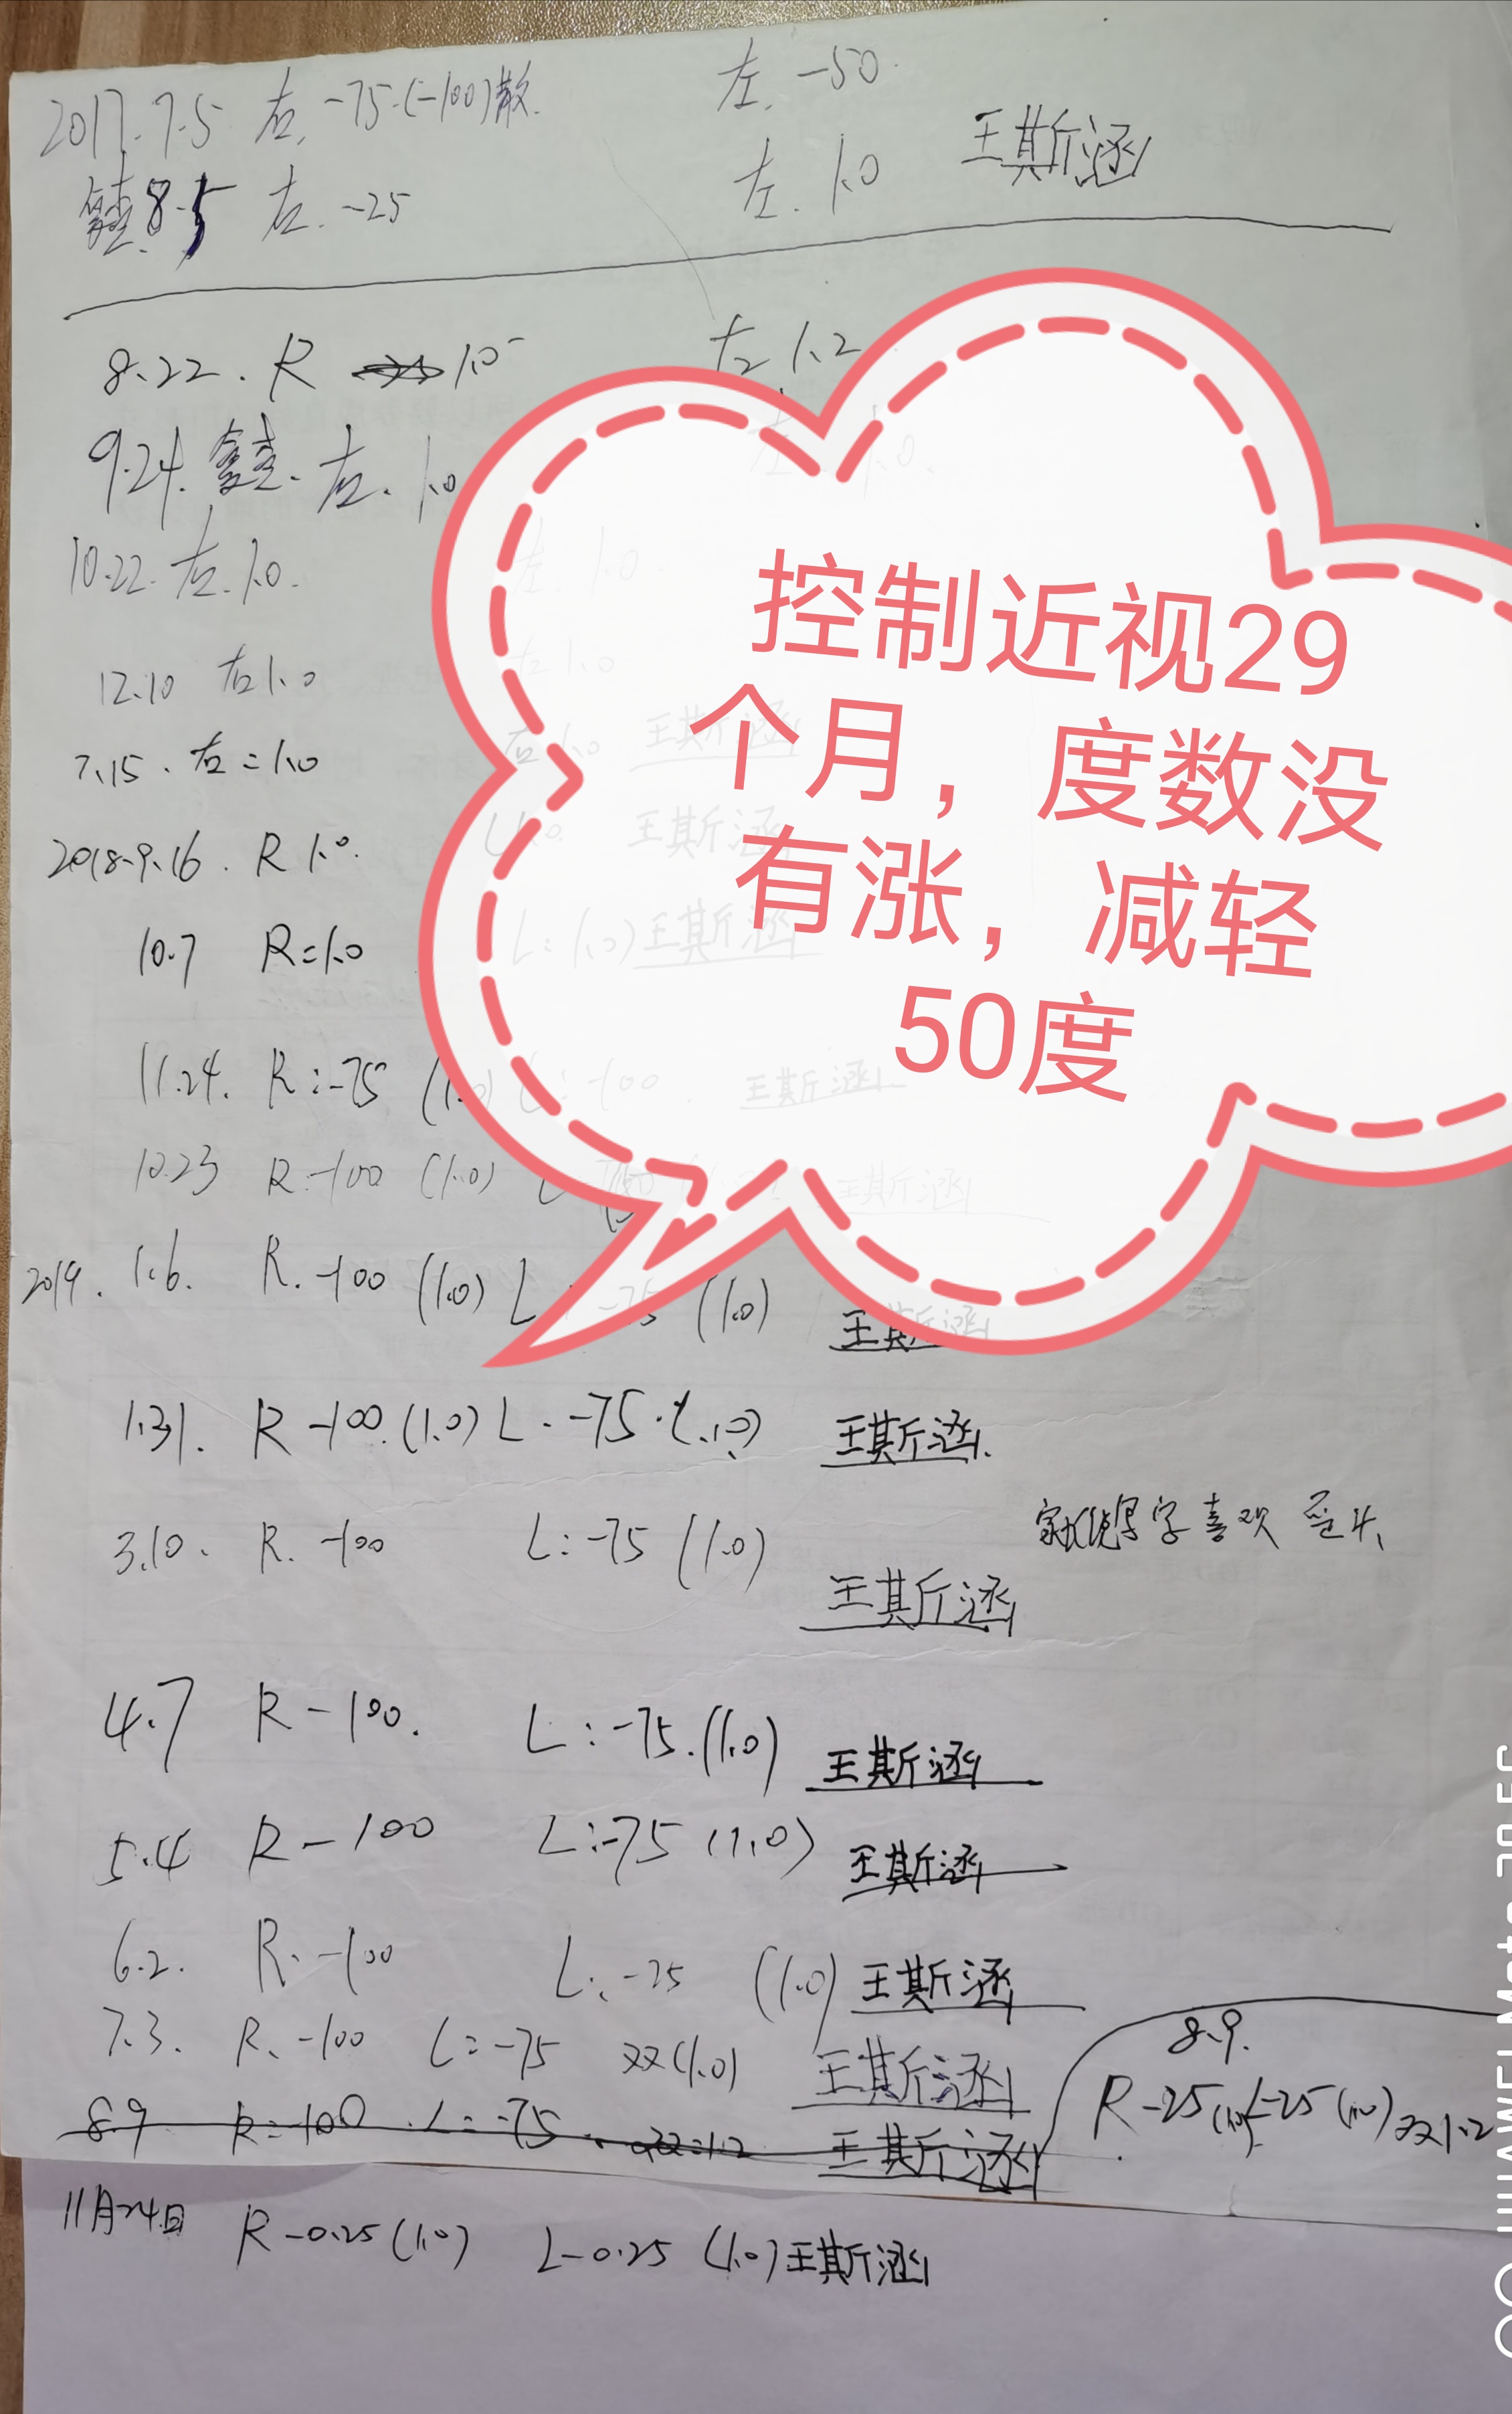 2017.7.5 右 -75.(-100)散. 左. -50.
8.5 右. -25 左. 1.0 王斯涵
8.22. R 1.0⁻ 左 1.2
9.24. 右. 1.0
10.22. 右. 1.0. 左. 1.0.
12.10 右 1.0 左 1.0
7.15. 右=1.0 左 1.0 王斯涵
2018.9.16. R 1.0. 王斯涵
10.7 R=1.0 L: 1.0) 王斯涵
11.24. R:-75 (1.0) L: -100 王斯涵
10.23 R-100 (1.0) L 王斯涵
2019. 1.6. R. -100 (1.0) L: -75 (1.0) 王斯涵
1.31. R -100.(1.0) L. -75.(1.0) 王斯涵.
3.10. R. -100 L: -75 (1.0) 王斯涵
写字喜欢
4.7 R -100. L: -75.(1.0) 王斯涵
5.4 R -100 L:-75 (1.0) 王斯涵
6.2. R. -100 L: -75 (1.0) 王斯涵
7.3. R. -100 L: -75 双(1.0) 王斯涵
8.9 R=-100 . L: -75 . 双=1.2 王斯涵
8.9.
R -25(1.0) L-25 (1.0) 双1.2
11月24日 R -0.25 (1.0) L-0.25 (1.0) 王斯涵
控制近视29
个月，度数没
有涨，减轻
50度